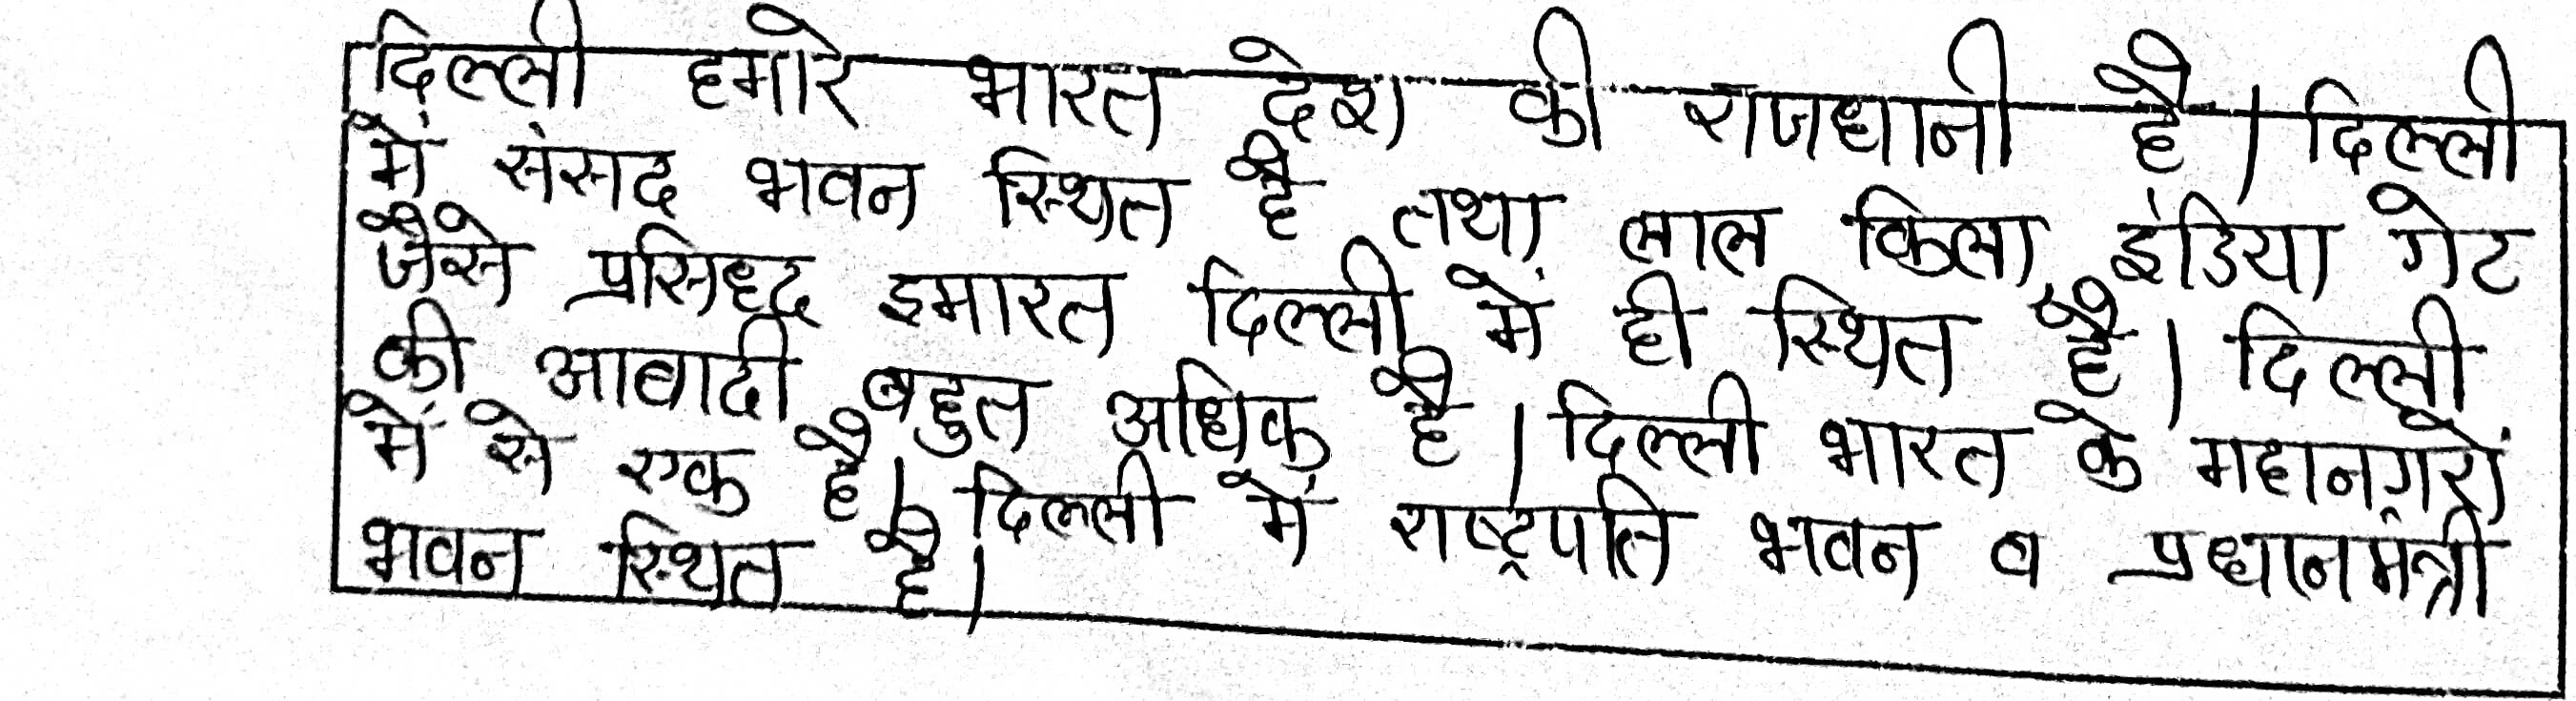 दिल्ली हमारे भारत देश की राजधानी है। दिल्ली
में संसद भवन स्थित है तथा लाल किला, इंडिया गेट
जैसे प्रसिध्द इमारत दिल्ली में ही स्थित है। दिल्ली
की आबादी बहुत अधिक है। दिल्ली भारत के महानगरों
में से एक है। दिल्ली में राष्ट्रपति भवन व प्रधानमंत्री
भवन स्थित है।